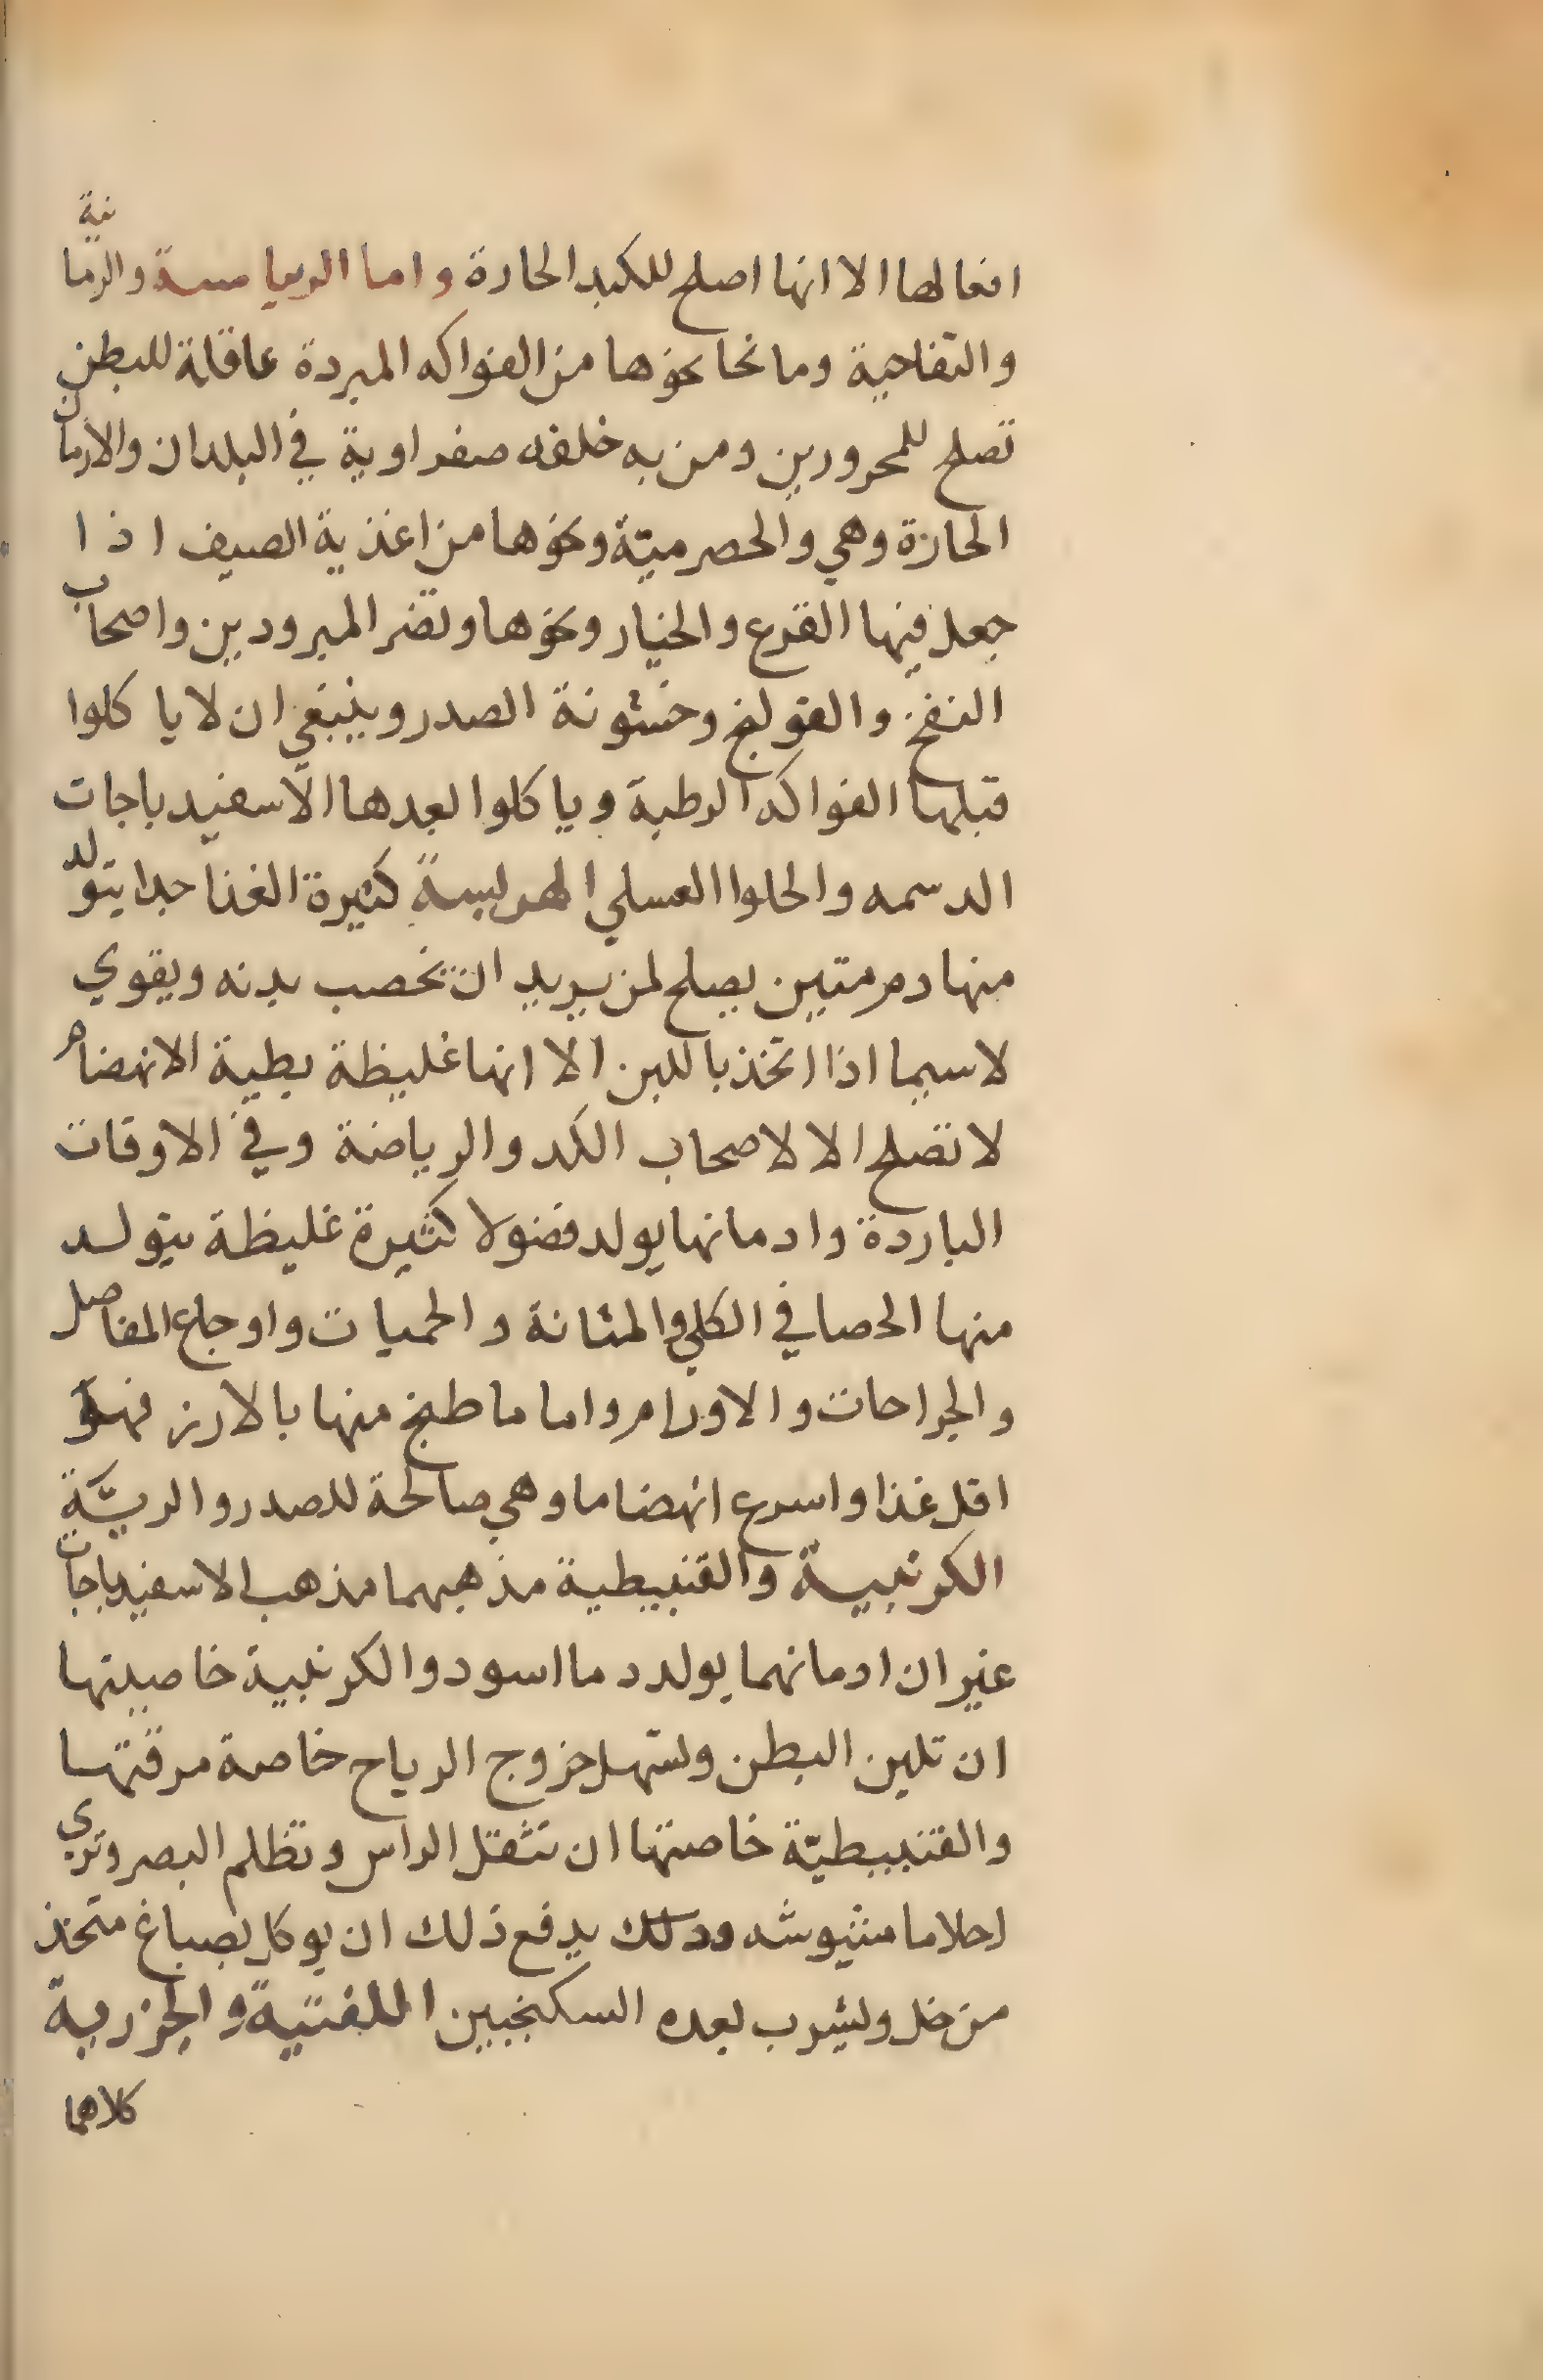 افعالها الا انها اصلح للكبد الحارة واما الريباسية والرمانية
والتفاحية وما نحا نحوها من الفواكه المبردة عاقلة للبطن
تصلح للمحرورين ومن به خلفه صفراوية في البلدان والازمان
الحارة وهي والحصرميّة ونحوها من اغذية الصيف اذا
جعل فيها القرع والخيار ونحوها وتضر المبرودين واصحاب
النفخ والقولنج وخشونة الصدر وينبغي ان لا ياكلوا
قبلها الفواكه الرطبة وياكلوا بعدها الاسفيد باجات
الدسمه والحلوا العسلي الهريسة كثيرة الغذا جدا يتولد
منها دم متين يصلح لمن يريد ان يخصب بدنه ويقوي
لاسيما اذا اتخذ باللبن الا انها غليظة بطية الانهضام
لا تصلح الا لاصحاب الكد والرياضة وفي الاوقات
الباردة وادمانها يولد فضولا كثيرة غليظة يتولد
منها الحصا في الكلي والمثانة والحميات واوجاع المفاصل
والجراحات والاورام واما ما طبخ منها بالارز فهو
اقل غذا واسرع انهضاما وهي صالحة للصدر والريّة
الكرنبية والقنبيطية مذهبهما مذهب الاسفيدباجات
غير ان ادمانهما يولد دما اسود والكرنبية خاصيتها
ان تلين البطن وتسهل خروج الرياح خاصة مرقتها
والقنبيطيّة خاصتها ان تثقل الراس وتظلم البصر وتري
احلاما مشوشه يدفع ذلك ان يوكل بصباغ متخذ
من خل ويشرب بعده السكنجبين اللفتية والجزرية
كلاهما